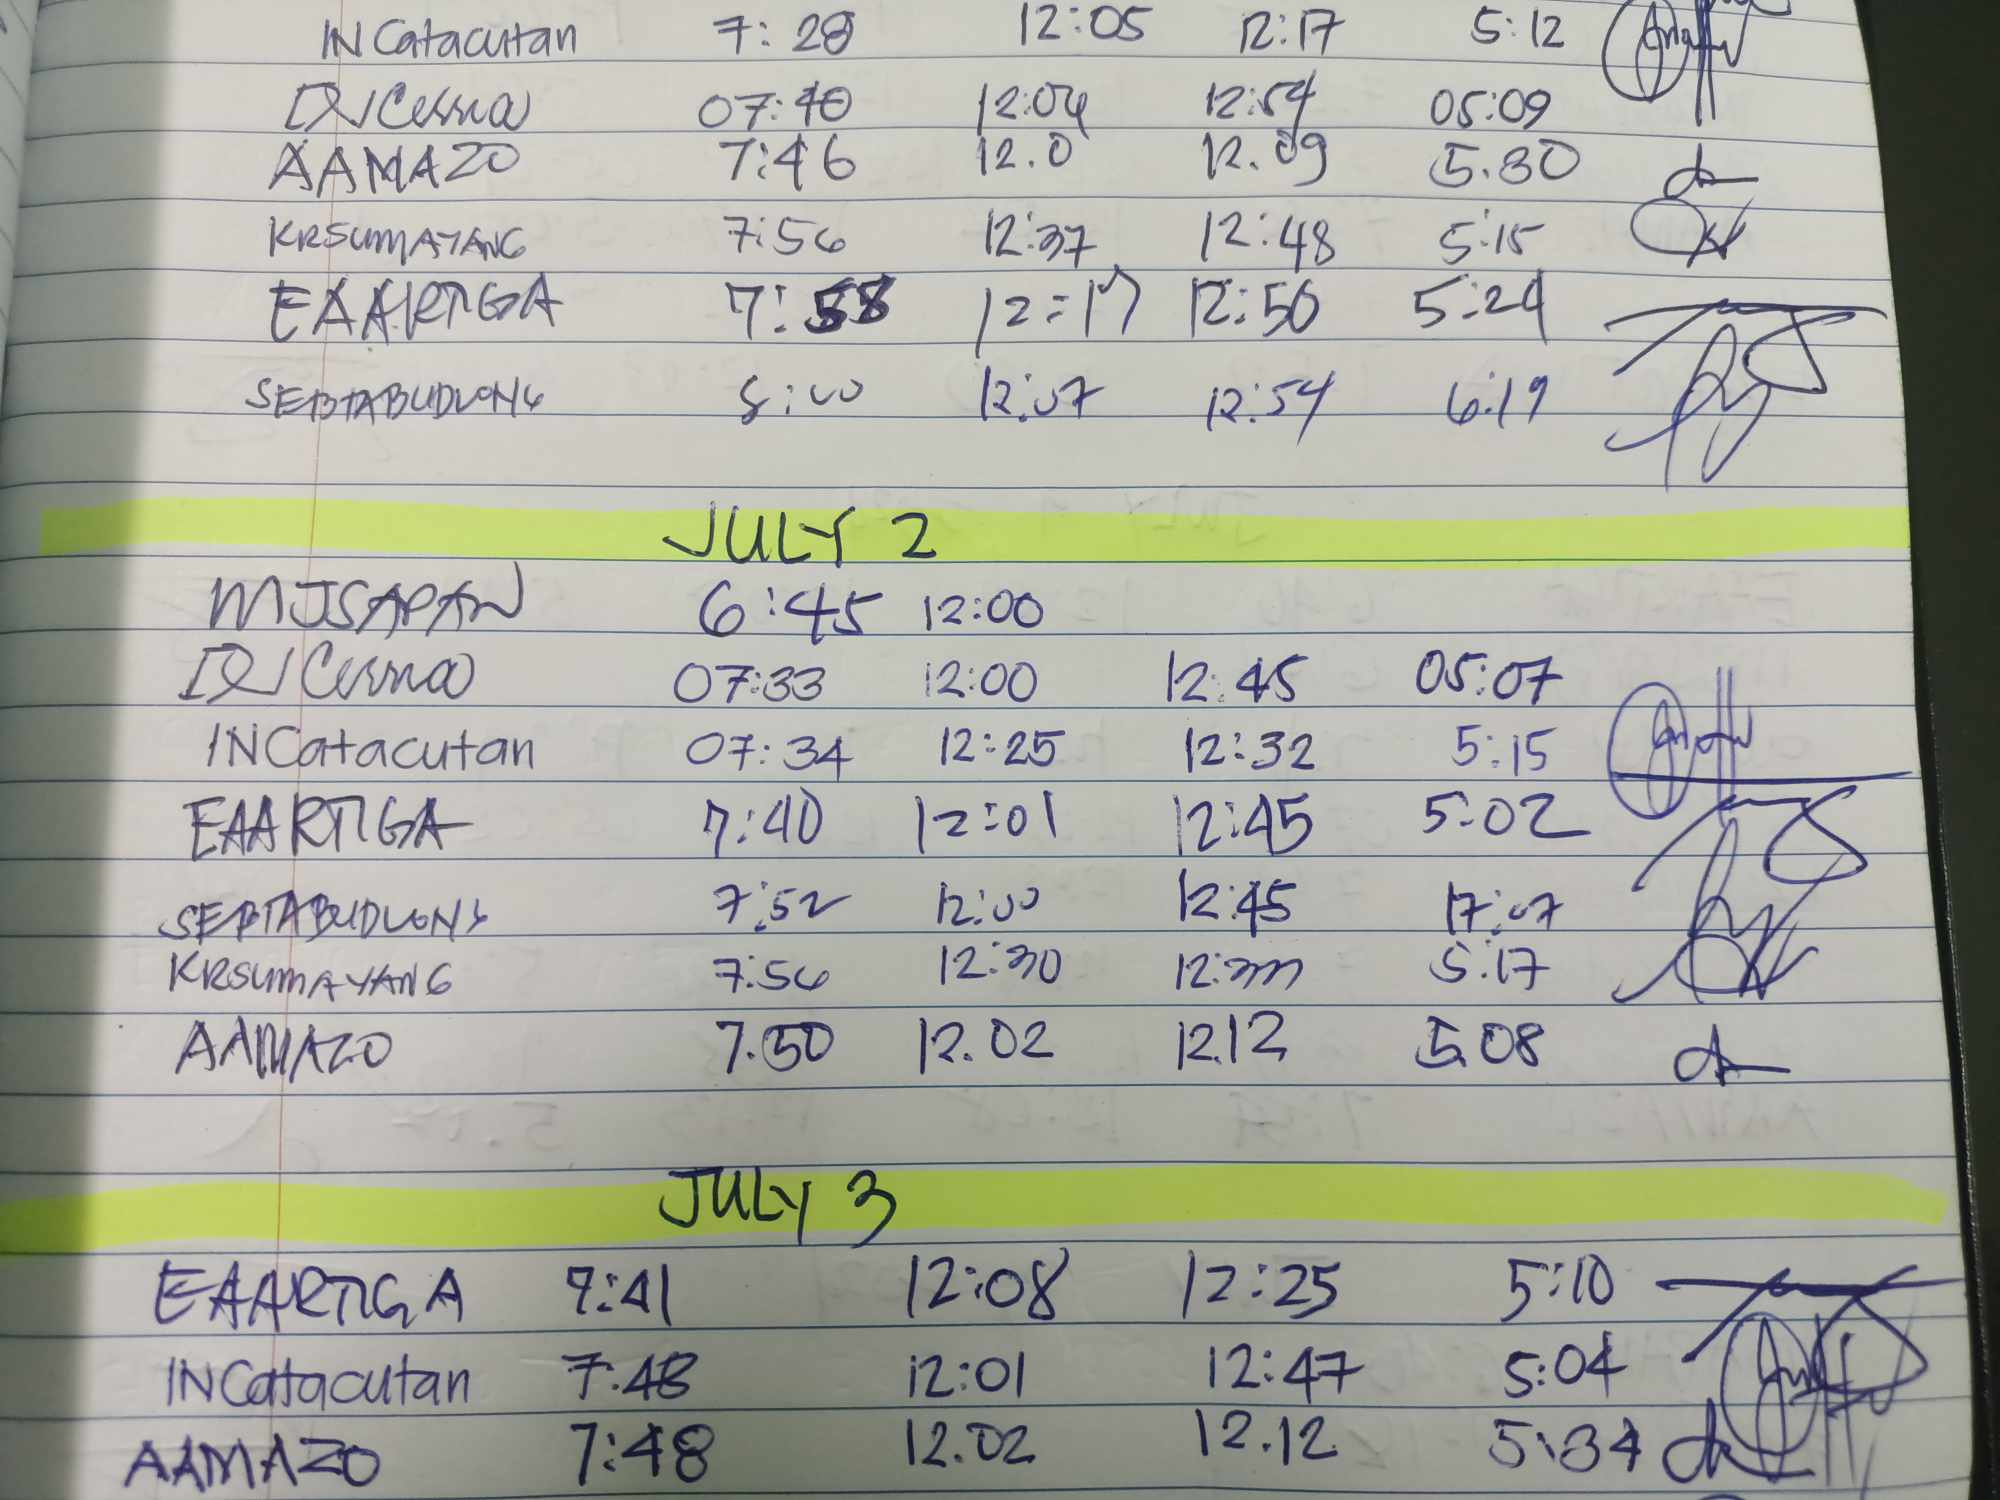 INCatacutan 7:28 12:05 12:17 5:12
07:40 12:04 12:54 05:09
AAMAZO 7:46 12.0 12.09 5.30
KRSUMAYANG 7:56 12:37 12:48 5:15
EAARTIGA 7:58 12:17 12:50 5:24
SEBTABUDLONG 8:00 12:07 12:54 6:19
JULY 2
MJSAPAN 6:45 12:00
07:33 12:00 12:45 05:07
INCatacutan 07:34 12:25 12:32 5:15
EAARTIGA 7:40 12:01 12:45 5:02
SEBTABUDLONG 7:52 12:00 12:45 17:07
KRSUMAYANG 7:56 12:30 12:33 5:17
AAMAZO 7.50 12.02 12.12 5.08
JULY 3
EAARTIGA 7:41 12:08 12:25 5:10
INCatacutan 7:48 12:01 12:47 5:04
AAMAZO 7:48 12.02 12.12 5:34